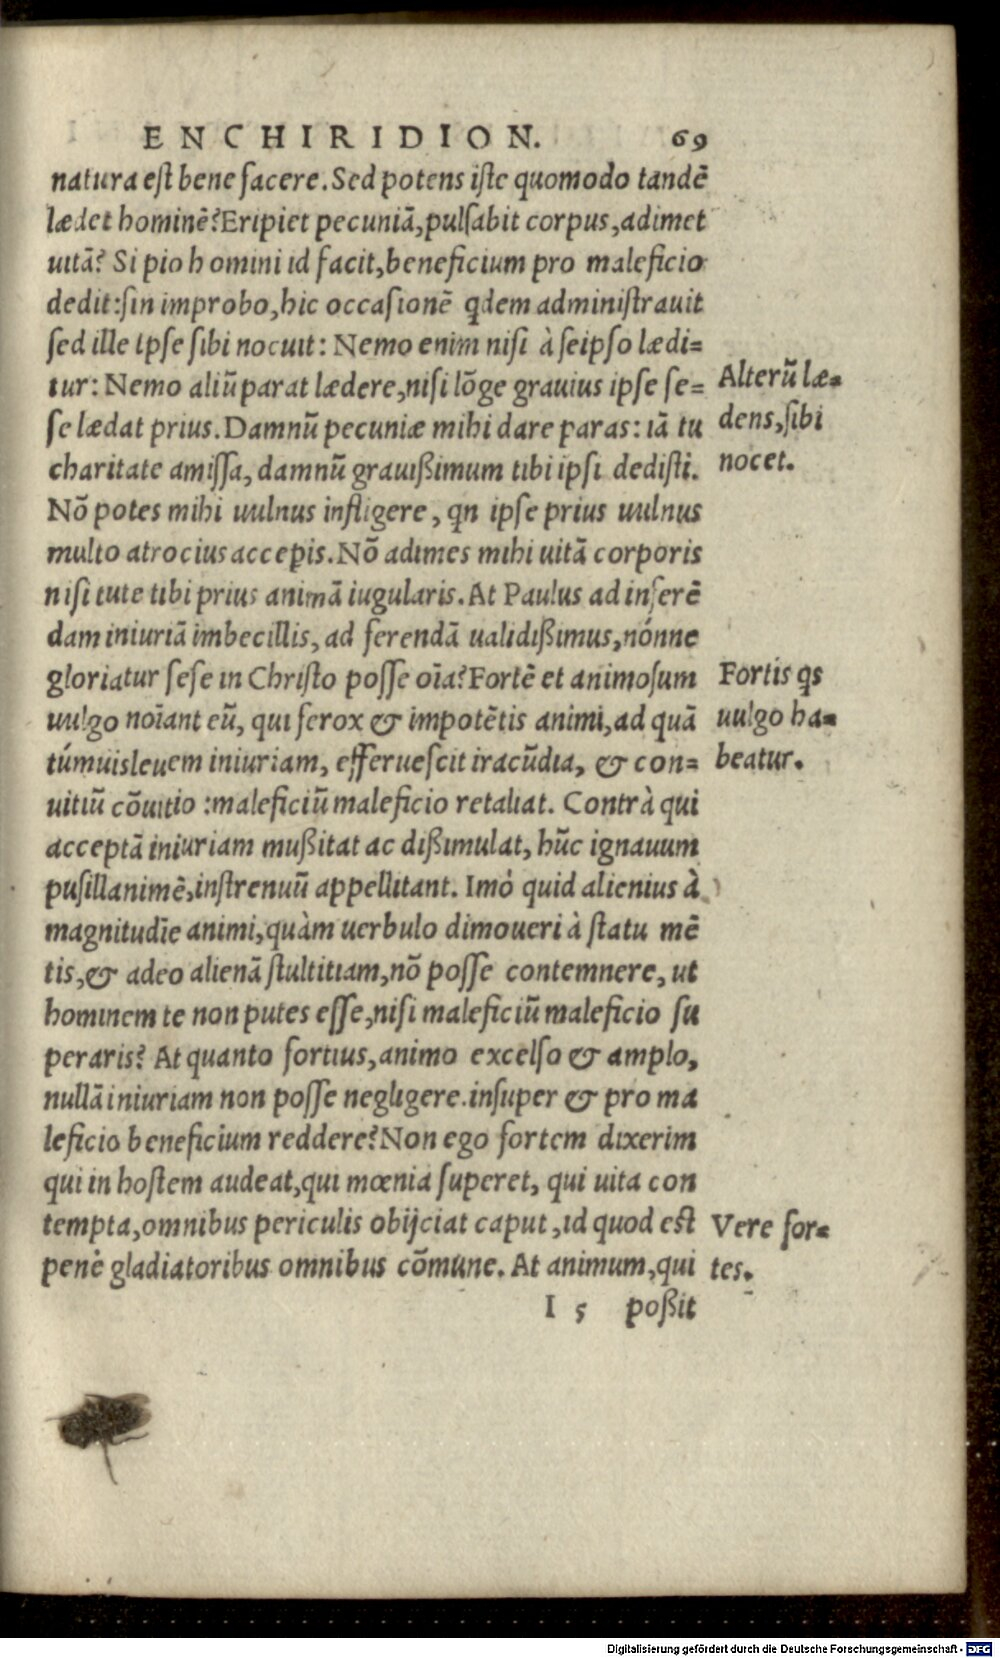 ENCHIRIDION. 69
natura est bene facere. Sed potens iste quomodo tandē
lædet hominē? Eripiet pecuniā, pulsabit corpus, adimet
uitā? Si pio homini id facit, beneficium pro maleficio
dedit: sin improbo, hic occasionē qdem administrauit
sed ille ipse sibi nocuit: Nemo enim nisi à seipso lædi=
tur: Nemo aliū parat lædere, nisi lōge grauius ipse se=
se lædat prius. Damnū pecuniæ mihi dare paras: iā tu
charitate amissa, damnū grauißimum tibi ipsi dedisti.
Nō potes mihi uulnus infligere, qn ipse prius uulnus
multo atrocius accepis. Nō adimes mihi uitā corporis
nisi tute tibi prius animā iugularis. At Paulus ad inferē
dam iniuriā imbecillis, ad ferendā ualidißimus, nónne
gloriatur sese in Christo posse oīa? Fortē et animosum
uulgo noīant eū, qui ferox & impotētis animi, ad quā
túmuis leuem iniuriam, efferuescit iracūdia, & con=
uitiū cōuitio: maleficiū maleficio retaliat. Contrà qui
acceptā iniuriam mußitat ac dißimulat, hūc ignauum
pusillanimē, instrenuū appellitant. Imò quid alienius à
magnitudīe animi, quàm uerbulo dimoueri à statu mē
tis, & adeo alienā stultitiam, nō posse contemnere, ut
hominem te non putes esse, nisi maleficiū maleficio su
peraris? At quanto fortius, animo excelso & amplo,
nullā iniuriam non posse negligere. insuper & pro ma
leficio beneficium reddere? Non ego fortem dixerim
qui in hostem audeat, qui mœnia superet, qui uita con
tempta, omnibus periculis obijciat caput, id quod est
penè gladiatoribus omnibus cōmune. At animum, qui
I 5 poßit
Alterū læ=
dens, sibi
nocet.
Fortis qs
uulgo ha=
beatur.
Vere for=
tes.
Digitalisierung gefördert durch die Deutsche Forschungsgemeinschaft - DFG